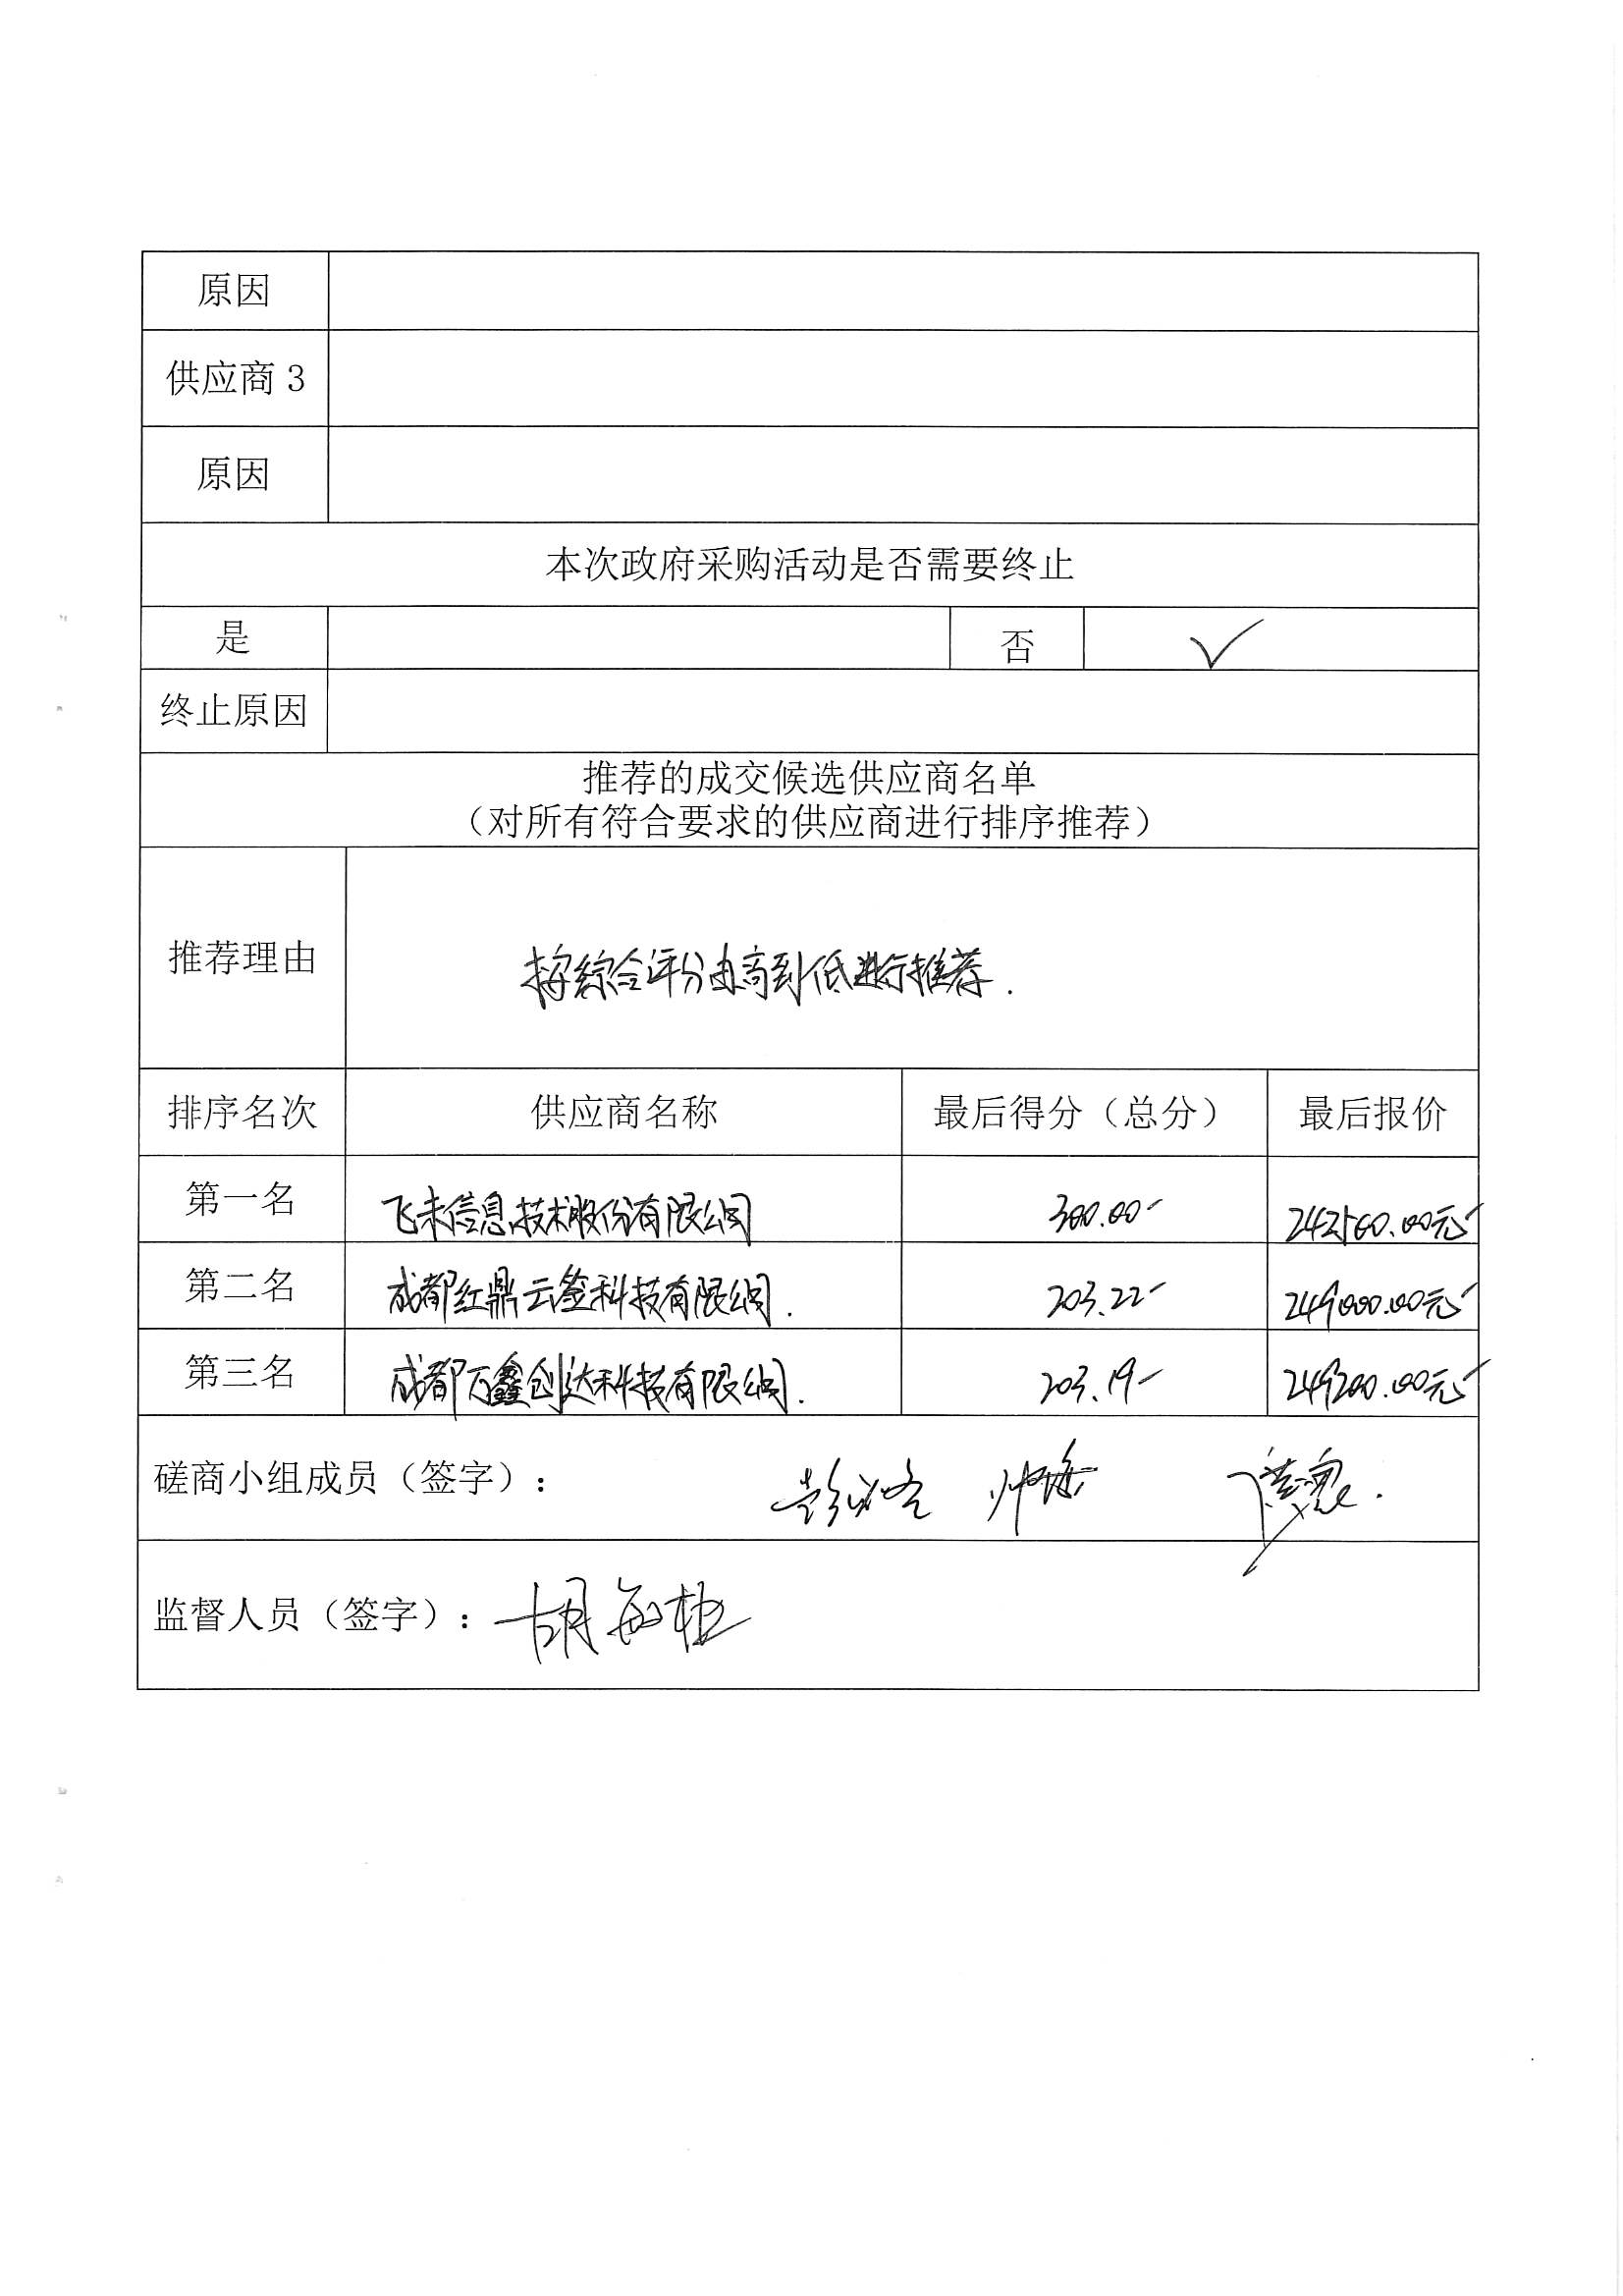 原因
供应商 3
原因
本次政府采购活动是否需要终止
是 否 ✓
终止原因
推荐的成交候选供应商名单
（对所有符合要求的供应商进行排序推荐）
推荐理由 按综合评分由高到低进行推荐.
排序名次 供应商名称 最后得分（总分） 最后报价
第一名 飞未信息技术股份有限公司 300.00 242560.00元
第二名 成都红鼎云签科技有限公司. 203.22 249000.00元
第三名 成都万鑫创达科技有限公司. 203.19 249200.00元
磋商小组成员（签字）：
监督人员（签字）：胡